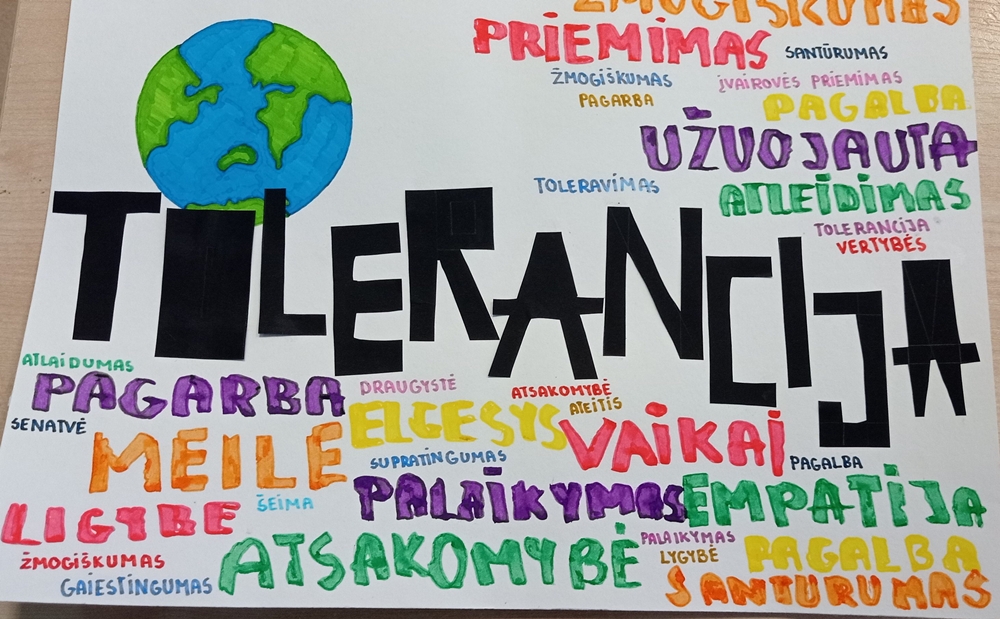 ŽMOGIŠKUMAS
PRIEMIMAS
SANTŪRUMAS
ŽMOGIŠKUMAS
ĮVAIROVĖS PRIEMIMAS
PAGARBA
PAGALBA
UŽUOJAUTA
TOLERAVIMAS
ATLEIDIMAS
TOLERANCIJA
VERTYBĖS
TOLERANCIJA
ATLAIDUMAS
PAGARBA
DRAUGYSTĖ
ATSAKOMYBĖ
ATEITIS
SENATVĖ
MEILE
ELGESYS
VAIKAI
SUPRATINGUMAS
PAGALBA
LIGYBE
ŠEIMA
PALAIKYMAS
EMPATIJA
ŽMOGIŠKUMAS
ATSAKOMYBĖ
PALAIKYMAS
LYGYBĖ
PAGALBA
GAIESTINGUMAS
SANTURUMAS